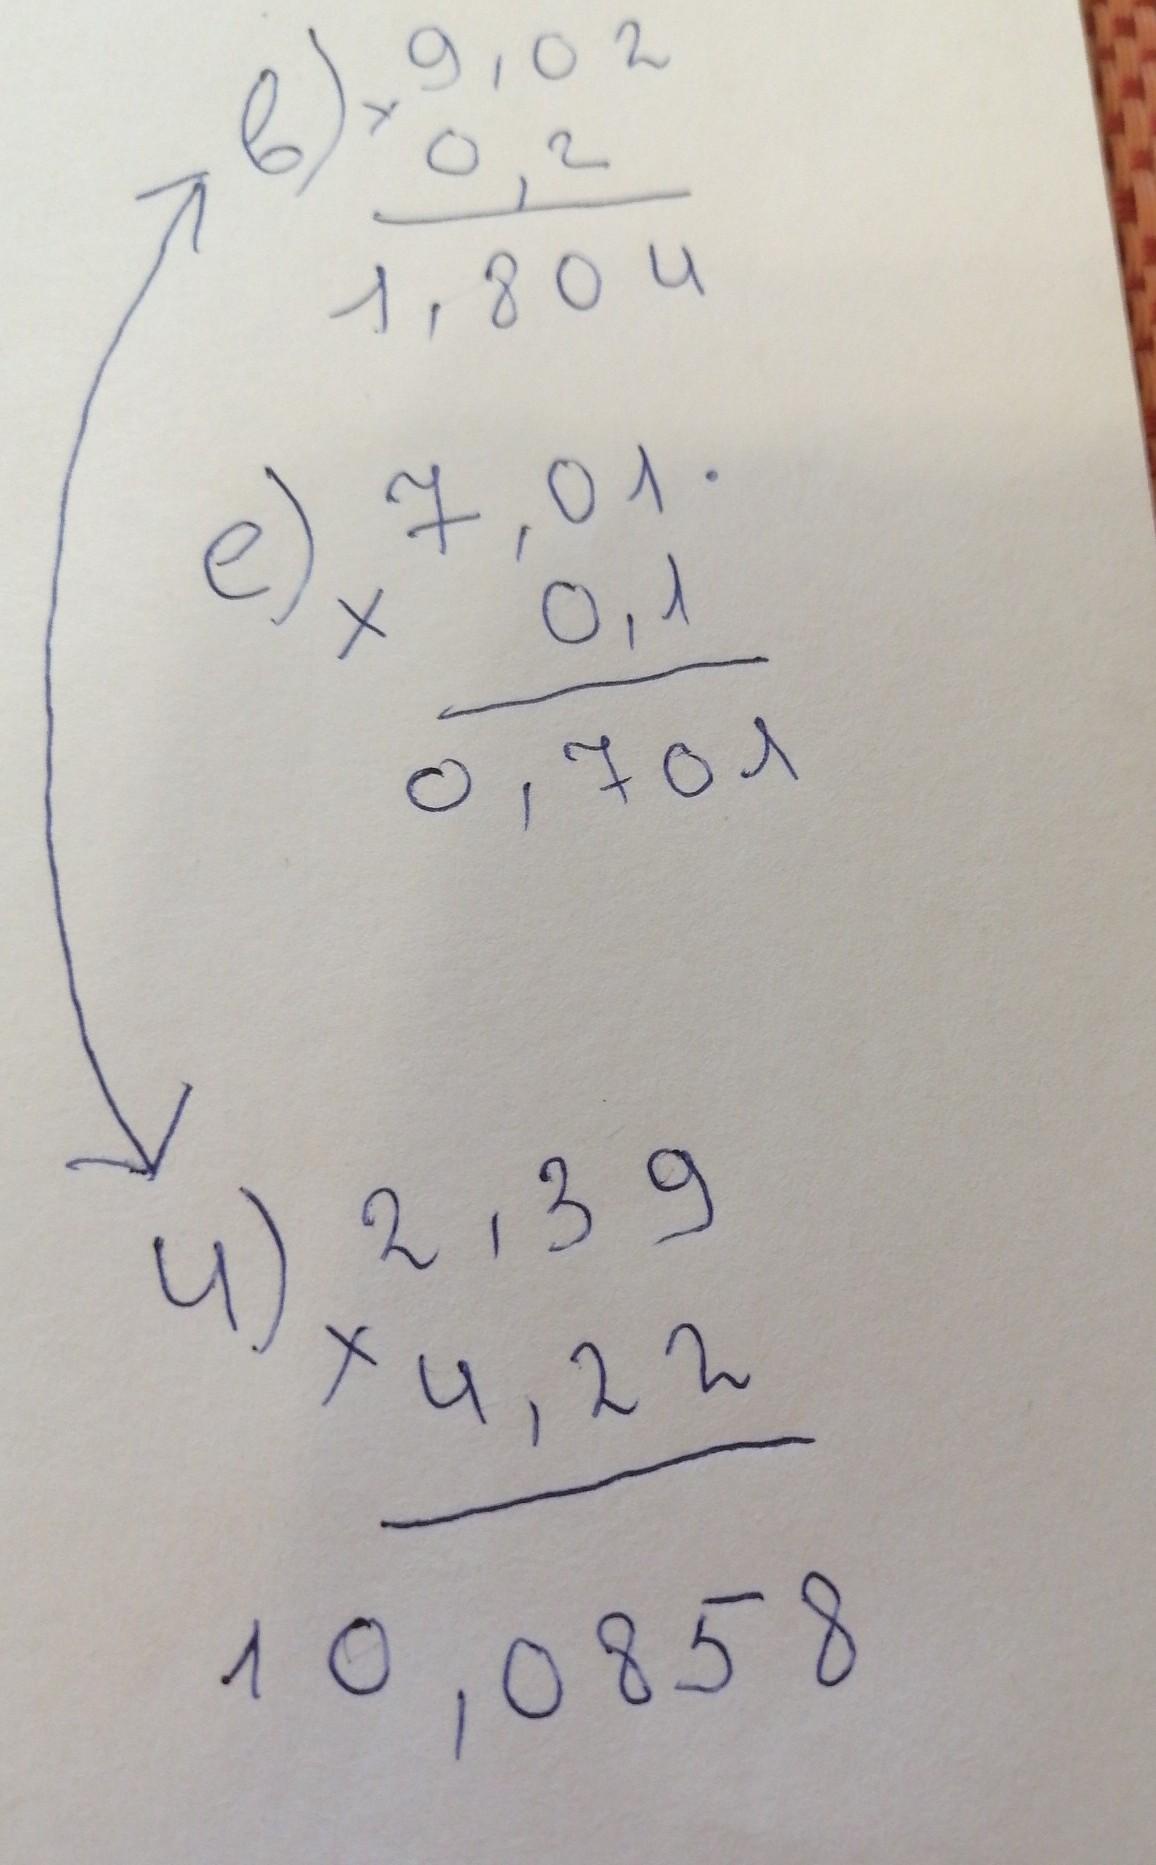 в) 9,02
× 0,2
1,804
е) 7,01.
× 0,1
0,701
ч) 2,39
× 4,22
10,0858